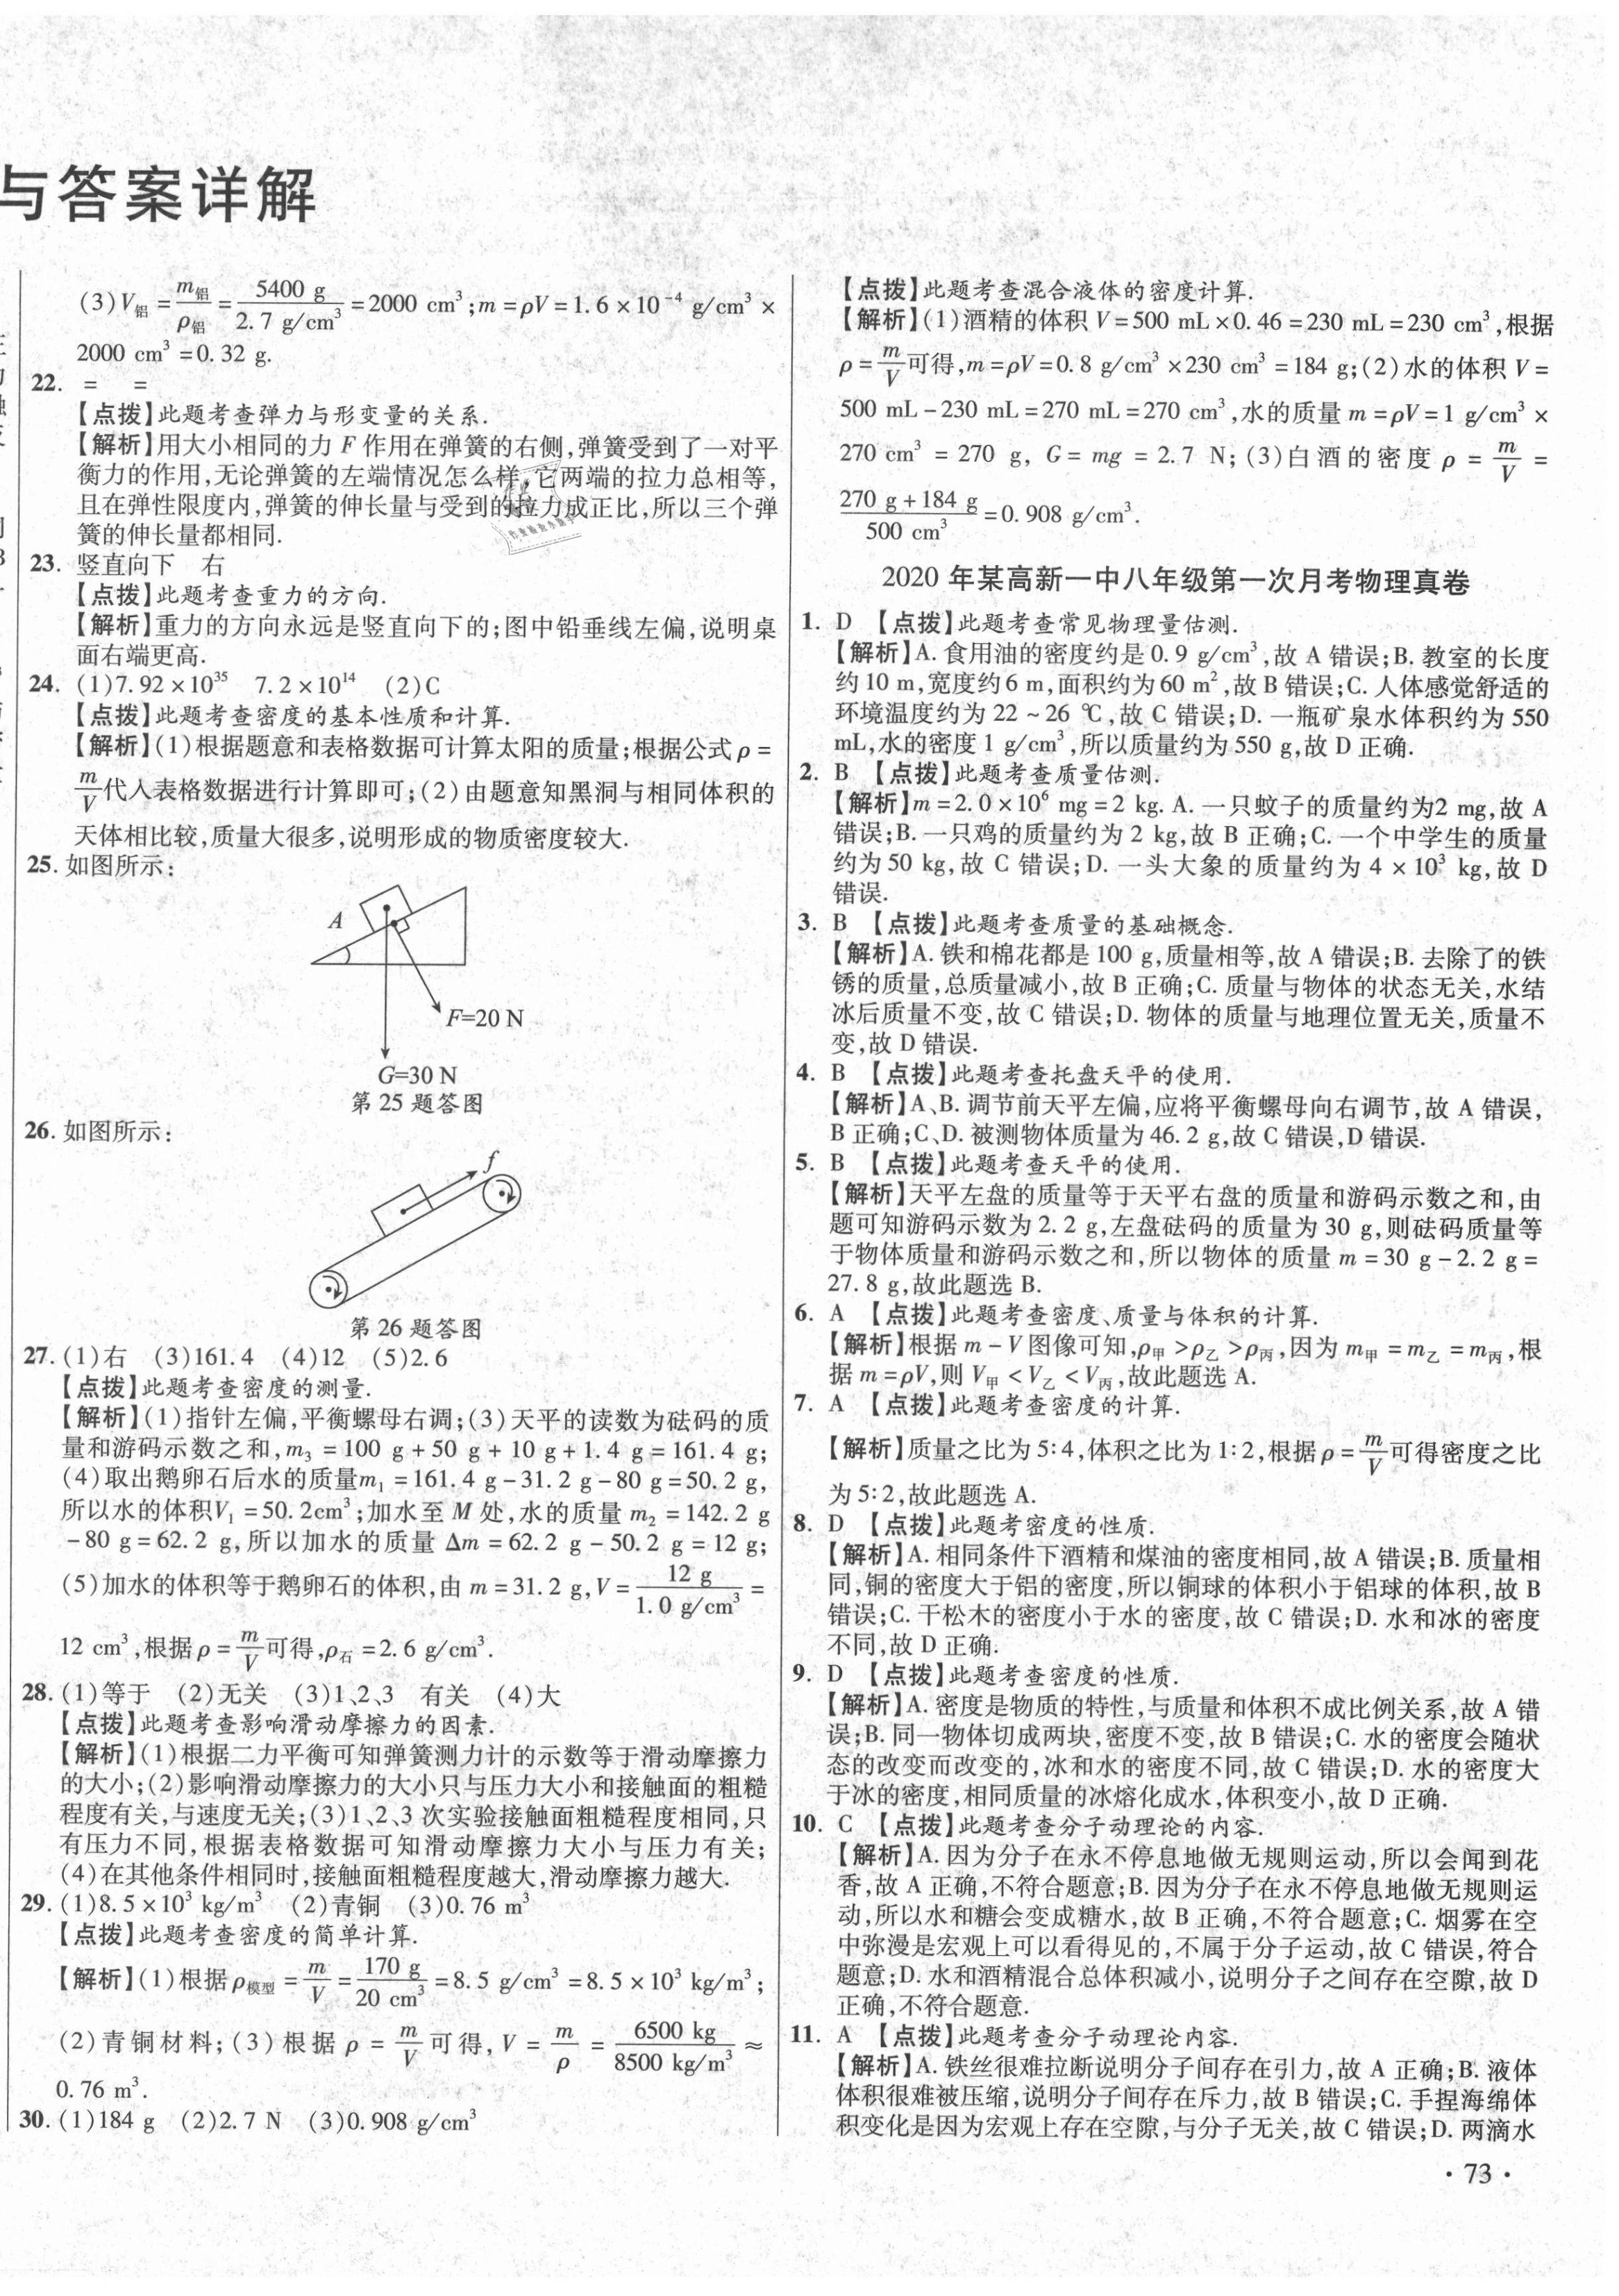 与答案详解
(3)V铝 = m铝/ρ铝 = 5400 g/2.7 g/cm³ = 2000 cm³;m = ρV = 1.6 × 10⁻⁴ g/cm³ ×
2000 cm³ = 0.32 g.
22. = =
【点拨】此题考查弹力与形变量的关系.
【解析】用大小相同的力 F 作用在弹簧的右侧,弹簧受到了一对平
衡力的作用,无论弹簧的左端情况怎么样,它两端的拉力总相等,
且在弹性限度内,弹簧的伸长量与受到的拉力成正比,所以三个弹
簧的伸长量都相同.
23. 竖直向下 右
【点拨】此题考查重力的方向.
【解析】重力的方向永远是竖直向下的;图中铅垂线左偏,说明桌
面右端更高.
24. (1)7.92 × 10³⁵ 7.2 × 10¹⁴ (2)C
【点拨】此题考查密度的基本性质和计算.
【解析】(1)根据题意和表格数据可计算太阳的质量;根据公式 ρ =
m/V 代入表格数据进行计算即可;(2)由题意知黑洞与相同体积的
天体相比较,质量大很多,说明形成的物质密度较大.
25. 如图所示:
A
F=20 N
G=30 N
第 25 题答图
26. 如图所示:
f
第 26 题答图
27. (1)右 (3)161.4 (4)12 (5)2.6
【点拨】此题考查密度的测量.
【解析】(1)指针左偏,平衡螺母右调;(3)天平的读数为砝码的质
量和游码示数之和,m₃ = 100 g + 50 g + 10 g + 1.4 g = 161.4 g;
(4)取出鹅卵石后水的质量m₁ = 161.4 g - 31.2 g - 80 g = 50.2 g,
所以水的体积V₁ = 50.2cm³;加水至 M 处,水的质量 m₂ = 142.2 g
- 80 g = 62.2 g,所以加水的质量 Δm = 62.2 g - 50.2 g = 12 g;
(5)加水的体积等于鹅卵石的体积,由 m = 31.2 g,V = 12 g/1.0 g/cm³ =
12 cm³,根据 ρ = m/V 可得,ρ石 = 2.6 g/cm³.
28. (1)等于 (2)无关 (3)1、2、3 有关 (4)大
【点拨】此题考查影响滑动摩擦力的因素.
【解析】(1)根据二力平衡可知弹簧测力计的示数等于滑动摩擦力
的大小;(2)影响滑动摩擦力的大小只与压力大小和接触面的粗糙
程度有关,与速度无关;(3)1、2、3 次实验接触面粗糙程度相同,只
有压力不同,根据表格数据可知滑动摩擦力大小与压力有关;
(4)在其他条件相同时,接触面粗糙程度越大,滑动摩擦力越大.
29. (1)8.5 × 10³ kg/m³ (2)青铜 (3)0.76 m³
【点拨】此题考查密度的简单计算.
【解析】(1)根据 ρ模型 = m/V = 170 g/20 cm³ = 8.5 g/cm³ = 8.5 × 10³ kg/m³;
(2)青铜材料;(3)根据 ρ = m/V 可得,V = m/ρ = 6500 kg/8500 kg/m³ ≈
0.76 m³.
30. (1)184 g (2)2.7 N (3)0.908 g/cm³
【点拨】此题考查混合液体的密度计算.
【解析】(1)酒精的体积 V = 500 mL × 0.46 = 230 mL = 230 cm³,根据
ρ = m/V 可得,m = ρV = 0.8 g/cm³ × 230 cm³ = 184 g;(2)水的体积 V =
500 mL - 230 mL = 270 mL = 270 cm³,水的质量 m = ρV = 1 g/cm³ ×
270 cm³ = 270 g, G = mg = 2.7 N;(3)白酒的密度 ρ = m/V =
270 g + 184 g/500 cm³ = 0.908 g/cm³.
2020 年某高新一中八年级第一次月考物理真卷
1. D 【点拨】此题考查常见物理量估测.
【解析】A. 食用油的密度约是 0.9 g/cm³,故 A 错误;B. 教室的长度
约 10 m,宽度约 6 m,面积约为 60 m²,故 B 错误;C. 人体感觉舒适的
环境温度约为 22 ~ 26 ℃,故 C 错误;D. 一瓶矿泉水体积约为 550
mL,水的密度 1 g/cm³,所以质量约为 550 g,故 D 正确.
2. B 【点拨】此题考查质量估测.
【解析】m = 2.0 × 10⁶ mg = 2 kg. A. 一只蚊子的质量约为2 mg,故 A
错误;B. 一只鸡的质量约为 2 kg,故 B 正确;C. 一个中学生的质量
约为 50 kg,故 C 错误;D. 一头大象的质量约为 4 × 10³ kg,故 D
错误.
3. B 【点拨】此题考查质量的基础概念.
【解析】A. 铁和棉花都是 100 g,质量相等,故 A 错误;B. 去除了的铁
锈的质量,总质量减小,故 B 正确;C. 质量与物体的状态无关,水结
冰后质量不变,故 C 错误;D. 物体的质量与地理位置无关,质量不
变,故 D 错误.
4. B 【点拨】此题考查托盘天平的使用.
【解析】A、B. 调节前天平左偏,应将平衡螺母向右调节,故 A 错误,
B 正确;C、D. 被测物体质量为 46.2 g,故 C 错误,D 错误.
5. B 【点拨】此题考查天平的使用.
【解析】天平左盘的质量等于天平右盘的质量和游码示数之和,由
题可知游码示数为 2.2 g,左盘砝码的质量为 30 g,则砝码质量等
于物体质量和游码示数之和,所以物体的质量 m = 30 g - 2.2 g =
27.8 g,故此题选 B.
6. A 【点拨】此题考查密度、质量与体积的计算.
【解析】根据 m - V 图像可知,ρ甲 > ρ乙 > ρ丙,因为 m甲 = m乙 = m丙,根
据 m = ρV,则 V甲 < V乙 < V丙,故此题选 A.
7. A 【点拨】此题考查密度的计算.
【解析】质量之比为 5∶4,体积之比为 1∶2,根据 ρ = m/V 可得密度之比
为 5∶2,故此题选 A.
8. D 【点拨】此题考密度的性质.
【解析】A. 相同条件下酒精和煤油的密度相同,故 A 错误;B. 质量相
同,铜的密度大于铝的密度,所以铜球的体积小于铝球的体积,故 B
错误;C. 干松木的密度小于水的密度,故 C 错误;D. 水和冰的密度
不同,故 D 正确.
9. D 【点拨】此题考查密度的性质.
【解析】A. 密度是物质的特性,与质量和体积不成比例关系,故 A 错
误;B. 同一物体切成两块,密度不变,故 B 错误;C. 水的密度会随状
态的改变而改变的,冰和水的密度不同,故 C 错误;D. 水的密度大
于冰的密度,相同质量的冰熔化成水,体积变小,故 D 正确.
10. C 【点拨】此题考查分子动理论的内容.
【解析】A. 因为分子在永不停息地做无规则运动,所以会闻到花
香,故 A 正确,不符合题意;B. 因为分子在永不停息地做无规则运
动,所以水和糖会变成糖水,故 B 正确,不符合题意;C. 烟雾在空
中弥漫是宏观上可以看得见的,不属于分子运动,故 C 错误,符合
题意;D. 水和酒精混合总体积减小,说明分子之间存在空隙,故 D
正确,不符合题意.
11. A 【点拨】此题考查分子动理论内容.
【解析】A. 铁丝很难拉断说明分子间存在引力,故 A 正确;B. 液体
体积很难被压缩,说明分子间存在斥力,故 B 错误;C. 手捏海绵体
积变化是因为宏观上存在空隙,与分子无关,故 C 错误;D. 两滴水
· 73 ·